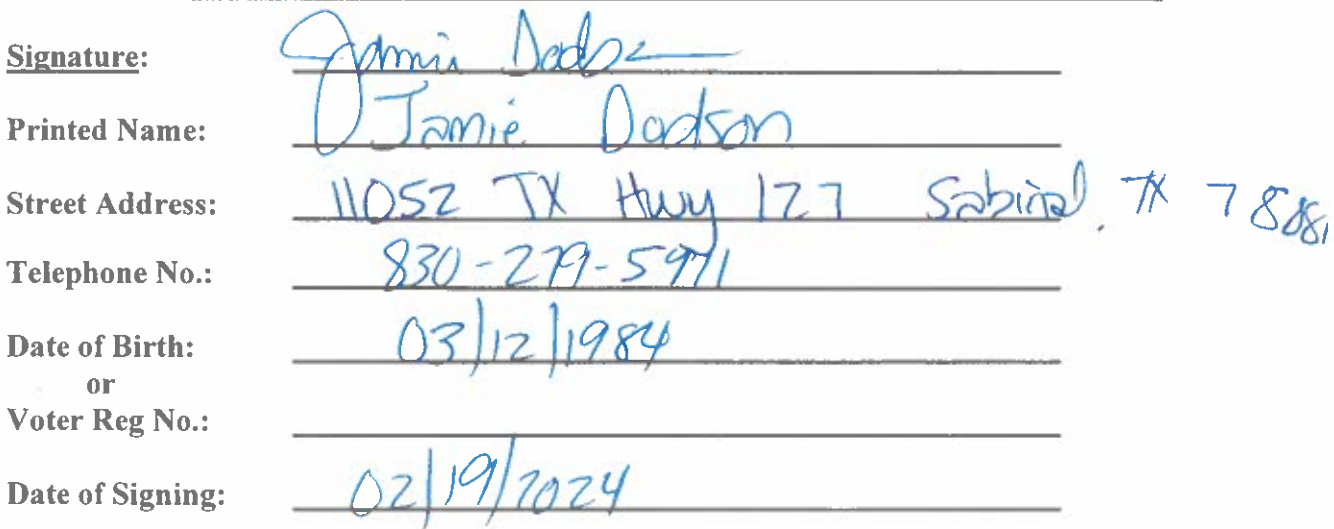 Signature: Jamie Dodson
Printed Name: Jamie Dodson
Street Address: 11052 TX Hwy 127 Sabinal, TX 78881
Telephone No.: 830-279-5971
Date of Birth: 03/12/1984
or
Voter Reg No.:
Date of Signing: 02/19/2024